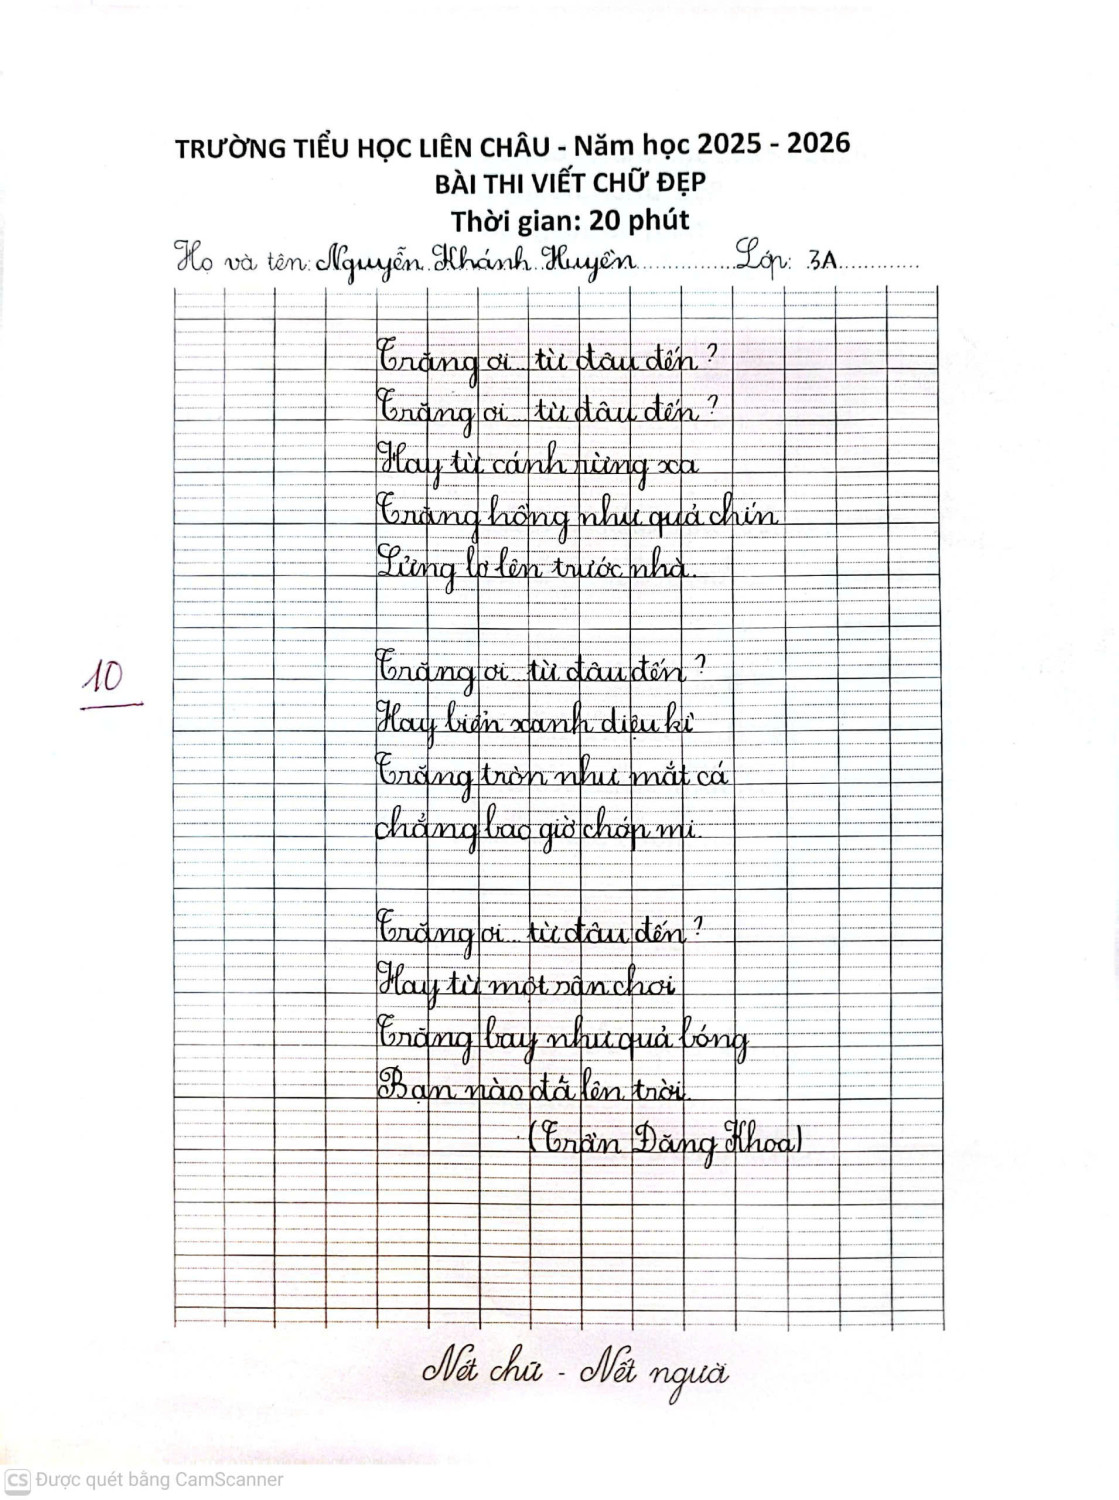 TRƯỜNG TIỂU HỌC LIÊN CHÂU - Năm học 2025 - 2026
BÀI THI VIẾT CHỮ ĐẸP
Thời gian: 20 phút
Họ và tên: Nguyễn Khánh Huyền Lớp: 3A
Trăng ơi... từ đâu đến?
Trăng ơi... từ đâu đến?
Hay từ cánh rừng xa
Trăng hồng như quả chín
Lửng lơ lên trước nhà.
Trăng ơi... từ đâu đến?
Hay biển xanh diệu kì
Trăng tròn như mắt cá
chẳng bao giờ chớp mi.
10
Trăng ơi... từ đâu đến?
Hay từ một sân chơi
Trăng bay như quả bóng
Bạn nào đá lên trời.
(Trần Đăng Khoa)
Nét chữ - Nết người
CS Được quét bằng CamScanner